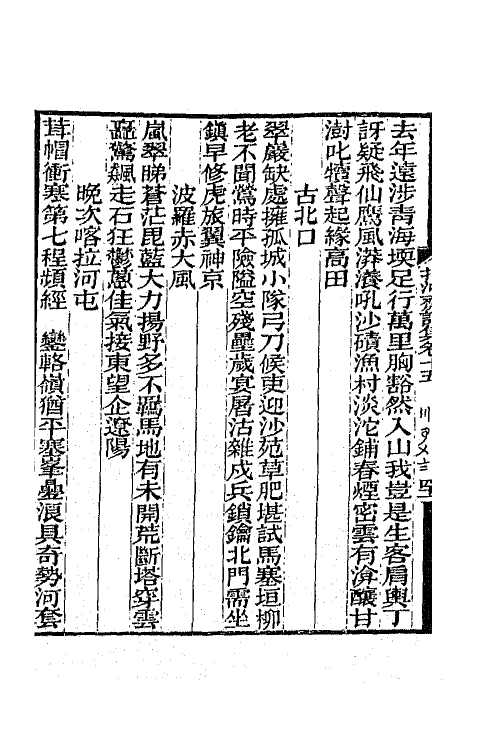 去年遠涉靑海堧足行萬里胸豁然入山我豈是生客肩輿丁
訝疑飛仙鷹風漭瀁吼沙磧漁村淡沱鋪春煙密雲有渰釀甘
澍叱犢聲起緣高田
古北口
翠嚴缺處擁孤城小隊弓刀候吏迎沙苑草肥堪試馬塞垣柳
老不聞鶯時平險隘空殘壘歲宴屠沽雜戍兵鎖鑰北門需坐
鎮早修虎旅翼神京
波羅赤大風
嵐翠睇蒼茫毘藍大力揚野多不羈馬地有未開荒斷塔穿雲
矗驚飆走石狂鬱蔥佳氣接東望企遼陽
晚次喀拉河屯
茸帽衝塞第七程頻經 鑾輅嶺猶平塞峯疊浪具奇勢河套